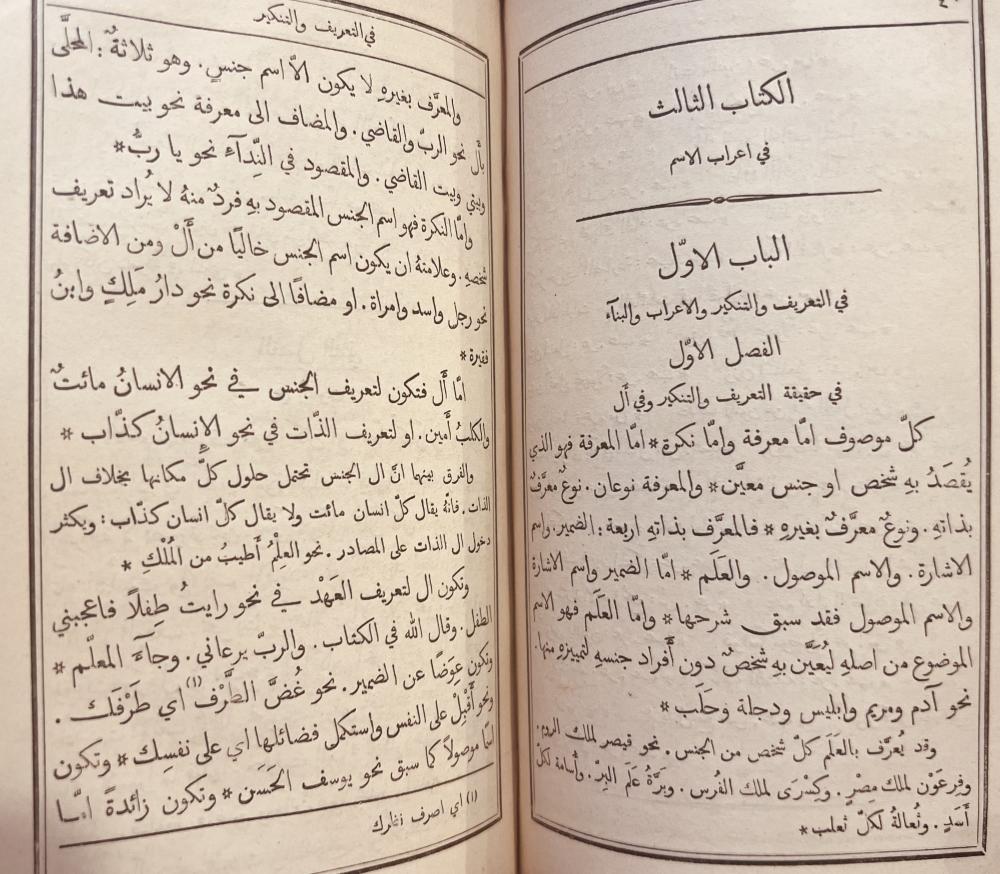 الكتاب الثالث
في اعراب الاسم
الباب الاوّل
في التعريف والتنكير والاعراب والبنآء
الفصل الاوّل
في حقيقة التعريف والتنكير وفي أل
كلّ موصوف امّا معرفة وامّا نكرة * امّا المعرفة فهو الذي
يُقصَدُ بهِ شخص او جنس معيَّن * والمعرفة نوعان . نوعٌ معرَّفٌ
بذاتهِ . ونوعٌ معرَّفٌ بغيرهِ * فالمعرَّف بذاتهِ اربعة : الضمير . واسم
الاشارة . والاسم الموصول . والعَلَم * امّا الضمير واسم الاشارة
والاسم الموصول فقد سبق شرحها * وامّا العَلَم فهو الاسم
الموضوع من اصلهِ ليُعيَّن بهِ شخصٌ دون أَفراد جنسهِ لتمييزهِ منها .
نحو آدم ومريم وابليس ودجلة وحَلَب *
وقد يُعرَّف بالعَلَم كلّ شخص من الجنس . نحو قيصر لملك الروم .
وفِرعَوْن لملك مِصْرٍ . وكِسْرَى لملك الفُرس . وبَرَّةُ عَلَم البِرّ . وأُسامة لكلّ
أَسَدٍ . وثُعالةُ لكلّ ثعلب *
في التعريف والتنكير
والمعرَّف بغيرهِ لا يكون الاّ اسم جنسٍ . وهو ثلاثةٌ : المحلَّى
بأَل نحو الربّ والقاضي . والمضاف الى معرفة نحو بيت هذا
وبيتي وبيت القاضي . والمقصود في النِّدآءَ نحو يا ربُّ *
وامَّا النكرة فهو اسم الجنس المقصود بهِ فردٌ منهُ لا يُراد تعريف
شخصهِ . وعلامتهُ ان يكون اسم الجنس خاليًا من أَلْ ومن الاضافة
نحو رجل واسد وامراة . او مضافًا الى نكرة نحو دارُ مَلِكٍ وابنُ
فقيرة *
امَّا أَل فتكون لتعريف الجنس في نحو الانسانُ مائتٌ
والكلبُ أَمين . او لتعريف الذّات في نحو الإنسانُ كذّاب *
والفرق بينها انّ ال الجنس تحتمل حلول كلّ مكانها بخلاف ال
الذات . فانَّهُ يقال كلّ انسان مائت ولا يقال كلّ انسان كذّاب : ويكثر
دخول ال الذات على المصادر . نحو العِلْمُ أَطيبُ من المُلْكِ *
وتكون ال لتعريف العَهْد في نحو رايتُ طِفلاً فاعجبني
الطفل . وقال الله في الكتاب . والربّ يرعاني . وجآءَ المعلّم *
وتكون عِوَضًا عن الضمير . نحو غُضَّ الطَّرْف(١) اي طَرْفَك .
ونحو أَقْبِلْ على النفس واستكمل فضائلها اي على نفسِك * وتكون
اسمًا موصولاً كما سبق نحو يوسف الحَسَن * وتكون زائدةً امّا
(١) اي اصرف نظرك